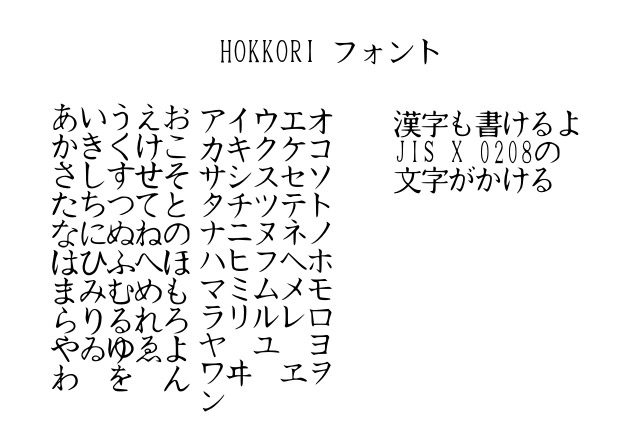 HOKKORI フォント
あいうえお
かきくけこ
さしすせそ
たちつてと
なにぬねの
はひふへほ
まみむめも
らりるれろ
やゐゆゑよ
わ　を　ん
アイウエオ
カキクケコ
サシスセソ
タチツテト
ナニヌネノ
ハヒフヘホ
マミムメモ
ラリルレロ
ヤ　ユ　ヨ
ワヰ　ヱヲ
ン
漢字も書けるよ
JIS X 0208の
文字がかける